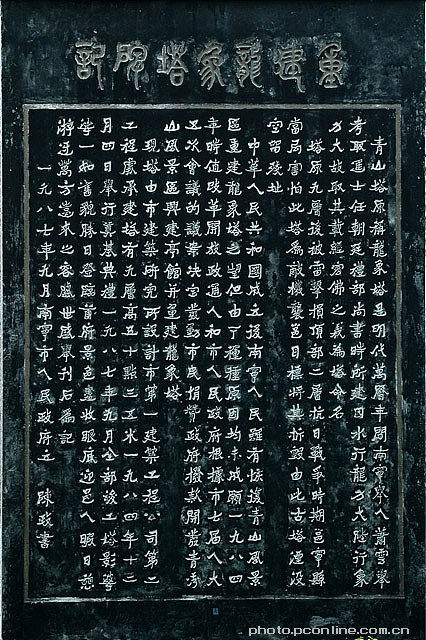 重建龍象塔碑記
青山塔原稱龍象塔是明代萬曆年間南寧舉人蕭雲舉
考取進士任朝廷禮部尚書時所建因水行龍力大陸行象
力大故取其載經宏佛之義為塔命名
塔原九層後被雷擊損頂部二層抗日戰爭時期邕寧縣
當局害怕此塔為敵機襲邕目標將其拆毀由此古塔湮沒
空留殘址
中華人民共和國成立後南寧人民雖有恢復青山風景
區重建龍象塔之望但由于種種原因均未成願一九八四
年時值改革開放政通人和市人民政府根據市七屆人大
五次會議的議案決定發動市民捐贊政府撥款開發青秀
山風景區興建亭館并重建龍象塔
現塔由市建築研究所設計市第一建築工程公司第二
工程處承建塔有九層高五十點三五米一九八四年十二
月四日舉行奠基典禮一九八七年九月全部竣工塔影凌
一如舊觀勝日登臨首府景色盡收眼底迎邑人暇日憩
將迓萬方遠來之客盛世盛舉刊石為記
一九八七年九月南寧市人民政府立 陳政書
photo.pconline.com.cn